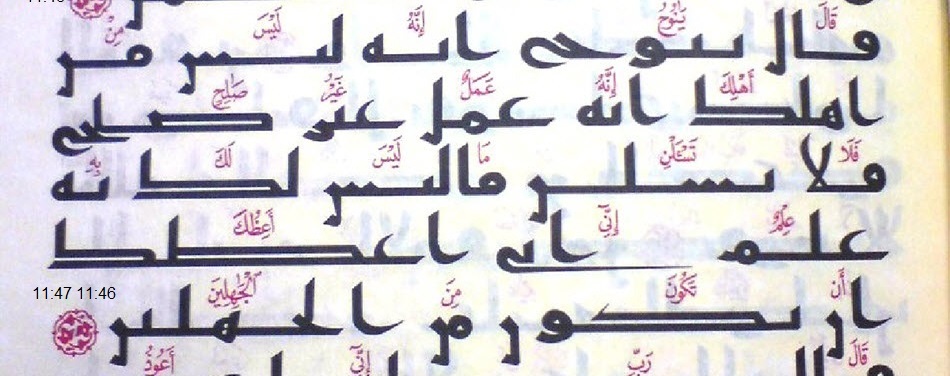 قَالَ يَٰنُوحُ إِنَّهُۥ لَيْسَ مِنْ
قال ىىوحى انه لىس مں
أَهْلِكَ إِنَّهُۥ عَمَلٌ غَيْرُ صَٰلِحٍ
اهلك انه عمل عىر صلح
فَلَا تَسْـَٔلْنِ مَا لَيْسَ لَكَ بِهِۦ
فلا ىسلں مالىس لك ىه
عِلْمٌ إِنِّىٓ أَعِظُكَ
علم انى اعطك
أَن تَكُونَ مِنَ ٱلْجَٰهِلِينَ
اں ىكوں مں الحهلىں
11:47 11:46
قَالَ رَبِّ إِنِّىٓ أَعُوذُ